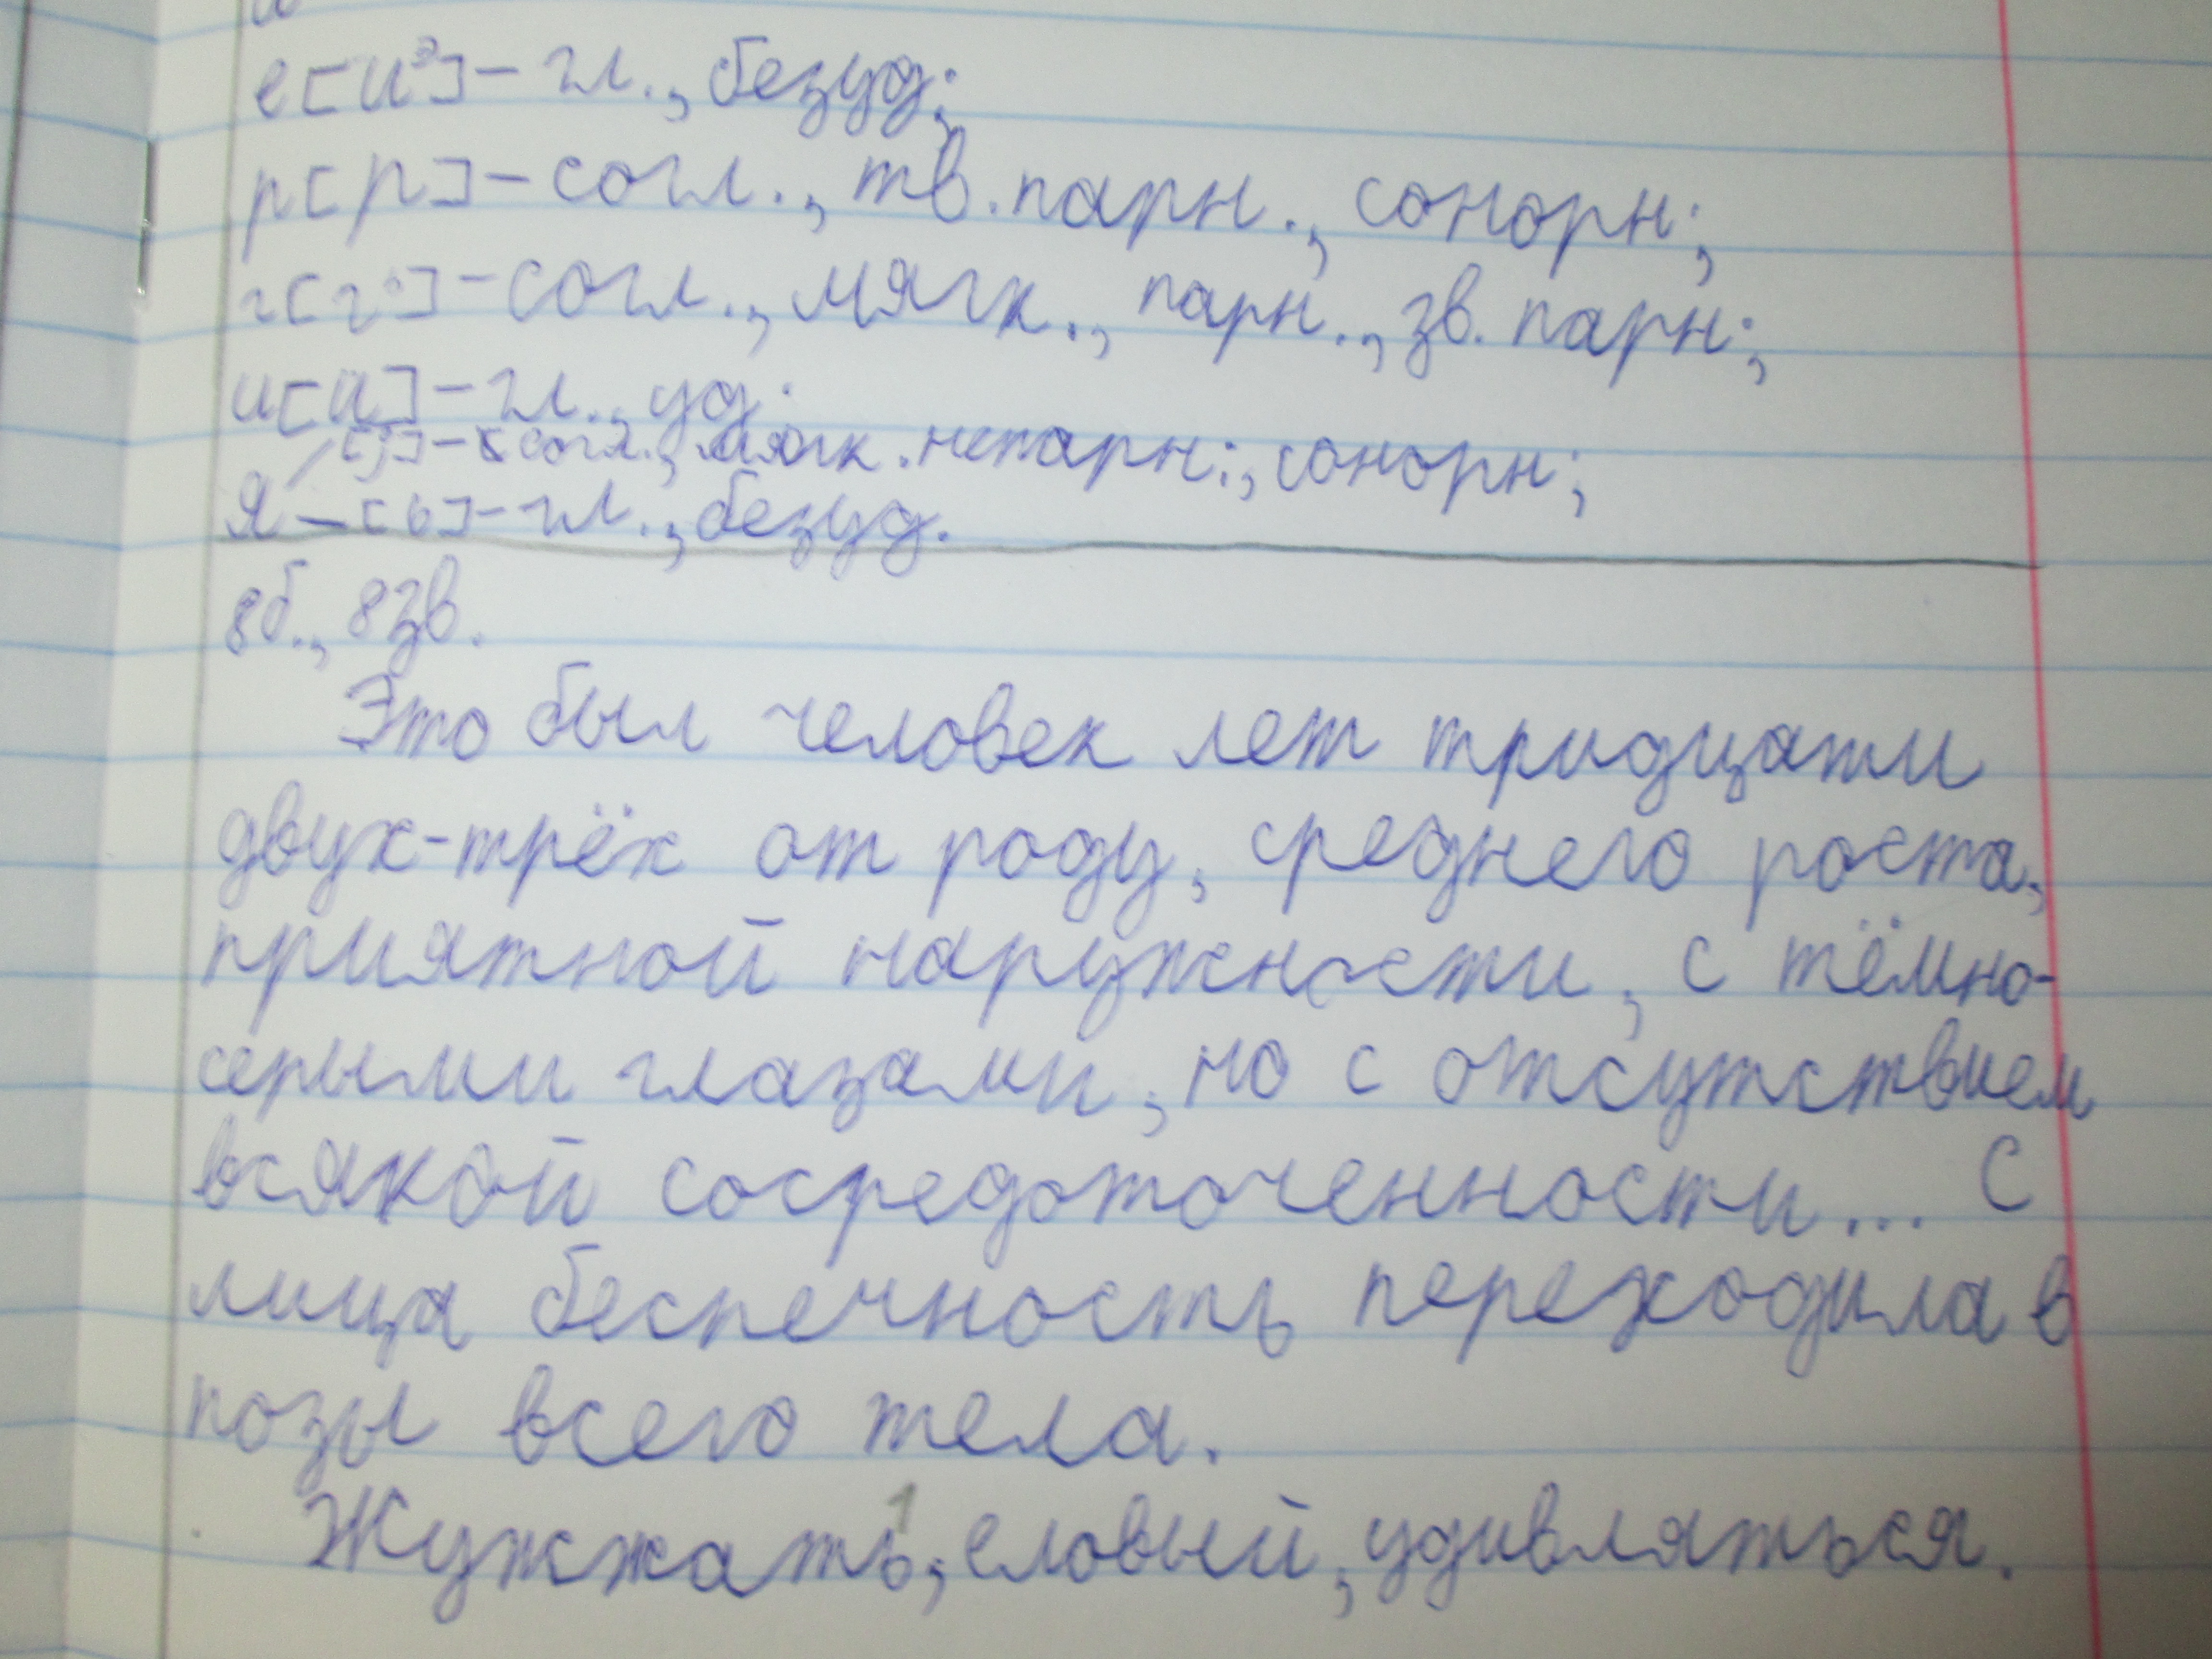 е[иэ]-гл., безуд;
р[р]-согл., тв. парн., сонорн;
г[г']-согл., мягк., парн., зв. парн;
и[и]-гл., уд.
[j]-согл., мягк. непарн., сонорн;
я-[ь]-гл., безуд.
8б., 8зв.
Это был человек лет тридцати
двух-трёх от роду, среднего роста,
приятной наружности, с тёмно-
серыми глазами, но с отсутствием
всякой сосредоточенности... С
лица беспечность переходила в
позы всего тела.
Жужжать,1 еловый, удивляться.